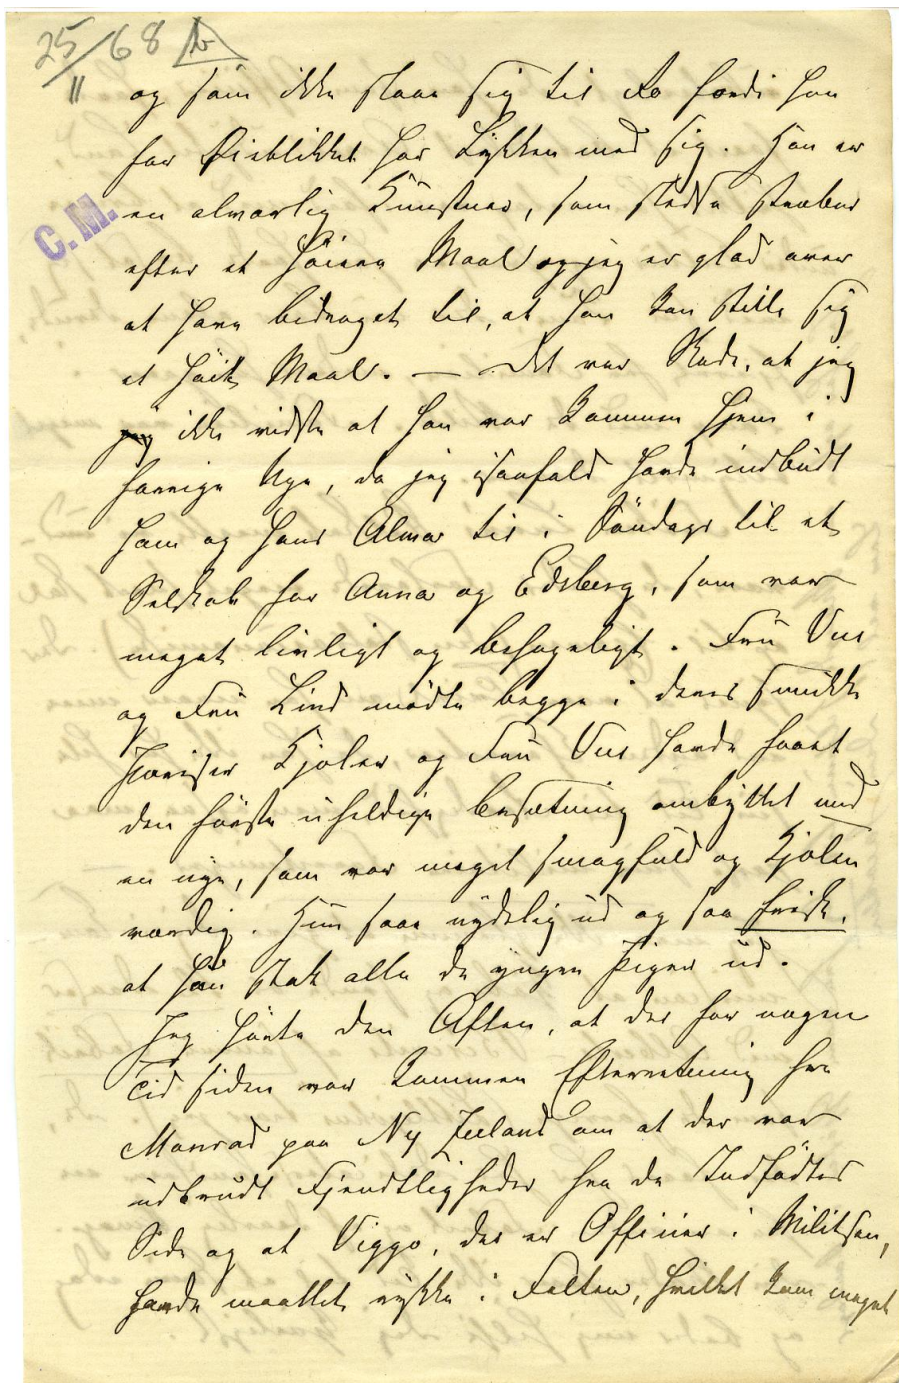 25/11 68 b
C.M.
og som ikke slaaer sig til Ro fordi han
for Øieblikket har Lykken med sig. Han er
en alvorlig Kunstner, som stedse stræber
efter et høiere Maal og jeg er glad over
at have bidraget til, at han kan stille sig
et høit Maal. — Det var Skade, at jeg
jeg ikke vidste at han var kommen hjem i
forrige Uge, da jeg isaafald havde indbudt
ham og hans Alma til i Søndags til et
Selskab for Anna og Edsberg, som var
meget livligt og behageligt. Fru Vus
og Fru Lind mødte begge i deres smukke
Pariser Kjoler og Fru Vus havde faaet
den første uheldige Besætning ombyttet med
en nye, som var meget smagfuld og Kjolen
værdig. Hun saae nydelig ud og saa frisk,
at hun stak alle de yngre Piger ud.
Jeg hørte den Aften, at der for nogen
Tid siden var kommen Efterretning fra
Monrad paa Ny Zeeland om at der var
udbrudt Fjendtligheder fra de Indfødtes
Side og at Viggo, der er Officier i Militsen,
havde maattet rykke i Felten, hvilket kom meget